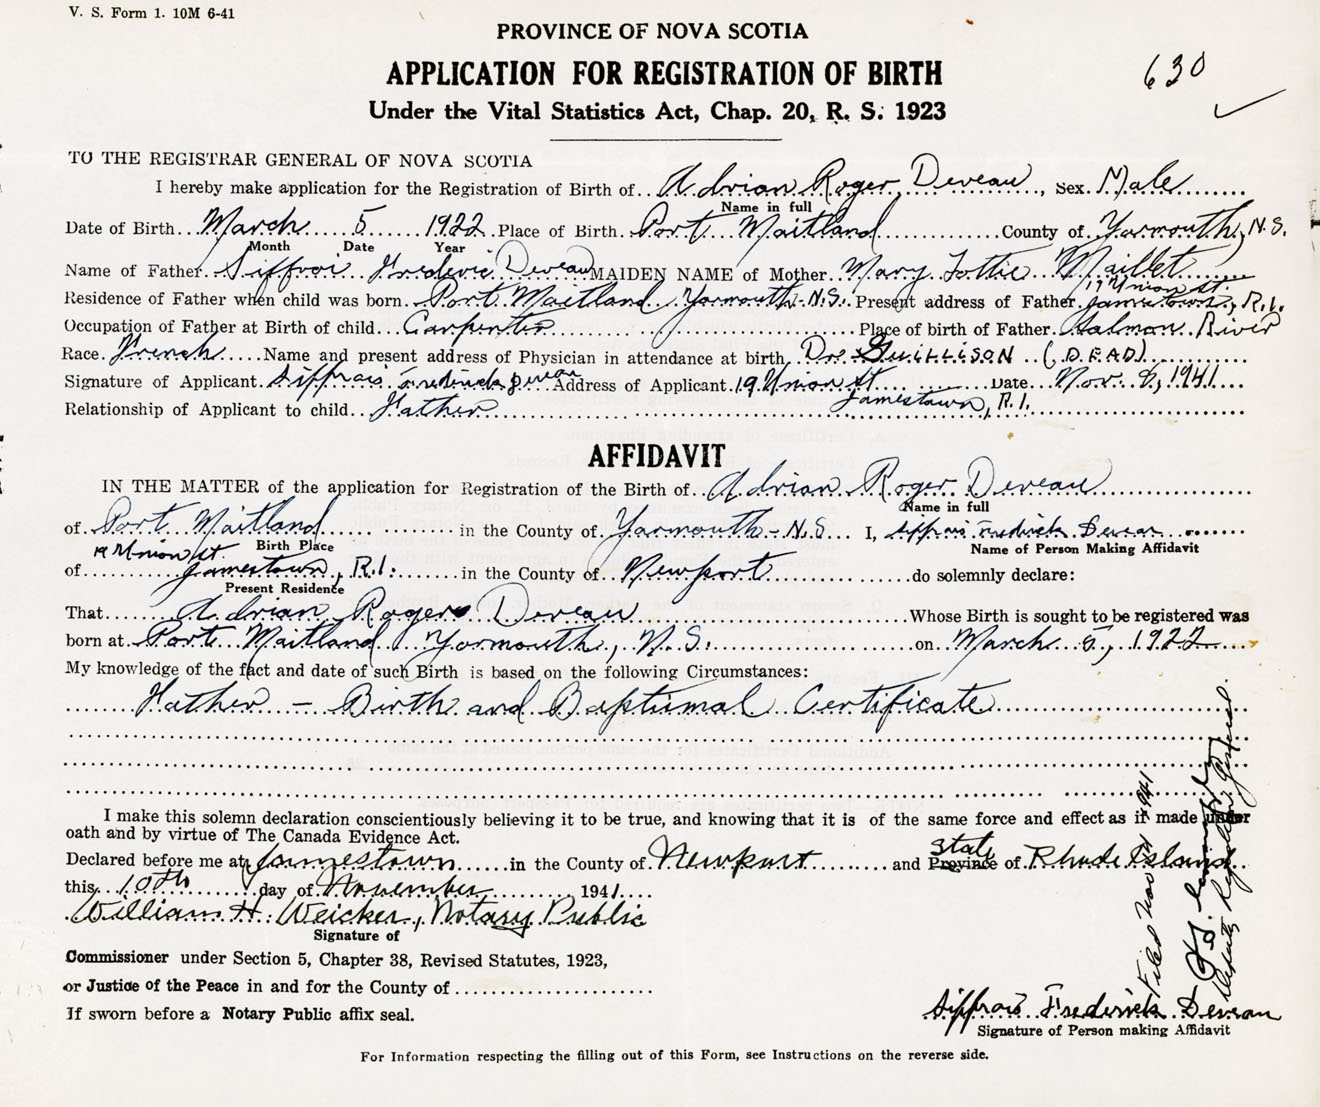 V. S. Form 1. 10M 6-41
PROVINCE OF NOVA SCOTIA
630
APPLICATION FOR REGISTRATION OF BIRTH
Under the Vital Statistics Act, Chap. 20, R. S. 1923
TO THE REGISTRAR GENERAL OF NOVA SCOTIA
I hereby make application for the Registration of Birth of Adrian Roger Deveau, Sex Male
Name in full
Date of Birth March 5 1922 Place of Birth Port Maitland County of Yarmouth, N.S.
Month Date Year
Name of Father Siffroi Frederic Deveau MAIDEN NAME of Mother Mary Lottie Maillet
19 Union St.
Residence of Father when child was born Port Maitland Yarmouth - N.S. Present address of Father Jamestown, R.I.
Occupation of Father at Birth of child Carpenter Place of birth of Father Salmon River
Race French Name and present address of Physician in attendance at birth Dr. GUILLISON (DEAD)
Signature of Applicant Siffrais Frederick Deveau Address of Applicant 19 Union St Date Nov. 8, 1941
Jamestown, R.I.
Relationship of Applicant to child Father
AFFIDAVIT
IN THE MATTER of the application for Registration of the Birth of Adrian Roger Deveau
Name in full
of Port Maitland in the County of Yarmouth - N.S I, Siffrais Fredrick Deveau
Birth Place Name of Person Making Affidavit
19 Union St.
of Jamestown, R.I. in the County of Newport do solemnly declare:
Present Residence
That Adrian Roger Deveau Whose Birth is sought to be registered was
born at Port Maitland Yarmouth, N.S. on March 5, 1922
My knowledge of the fact and date of such Birth is based on the following Circumstances:
Father - Birth and Baptismal Certificate
I make this solemn declaration conscientiously believing it to be true, and knowing that it is of the same force and effect as if made under
oath and by virtue of The Canada Evidence Act.
state
Declared before me at Jamestown in the County of Newport and Province of Rhode Island
this 10th day of November 1941
William H. Weicker, Notary Public
Signature of
Commissioner under Section 5, Chapter 38, Revised Statutes, 1923,
or Justice of the Peace in and for the County of
If sworn before a Notary Public affix seal.
Siffrais Frederick Deveau
Signature of Person making Affidavit
For Information respecting the filling out of this Form, see Instructions on the reverse side.
Filed Nov 1941
Deputy Registrar General.